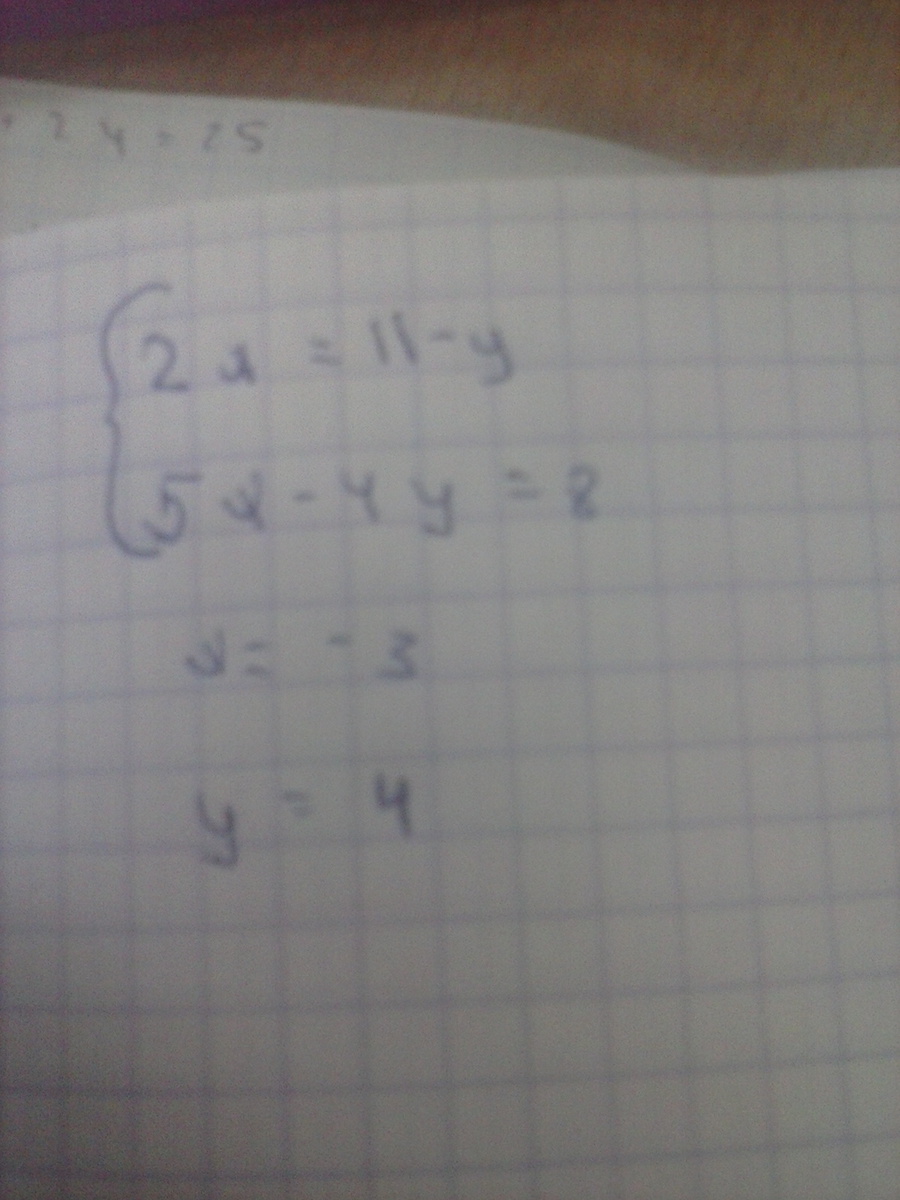 2y = 25
{ 2x = 11 - y
5x - 4y = 8
x = - 3
y = 4